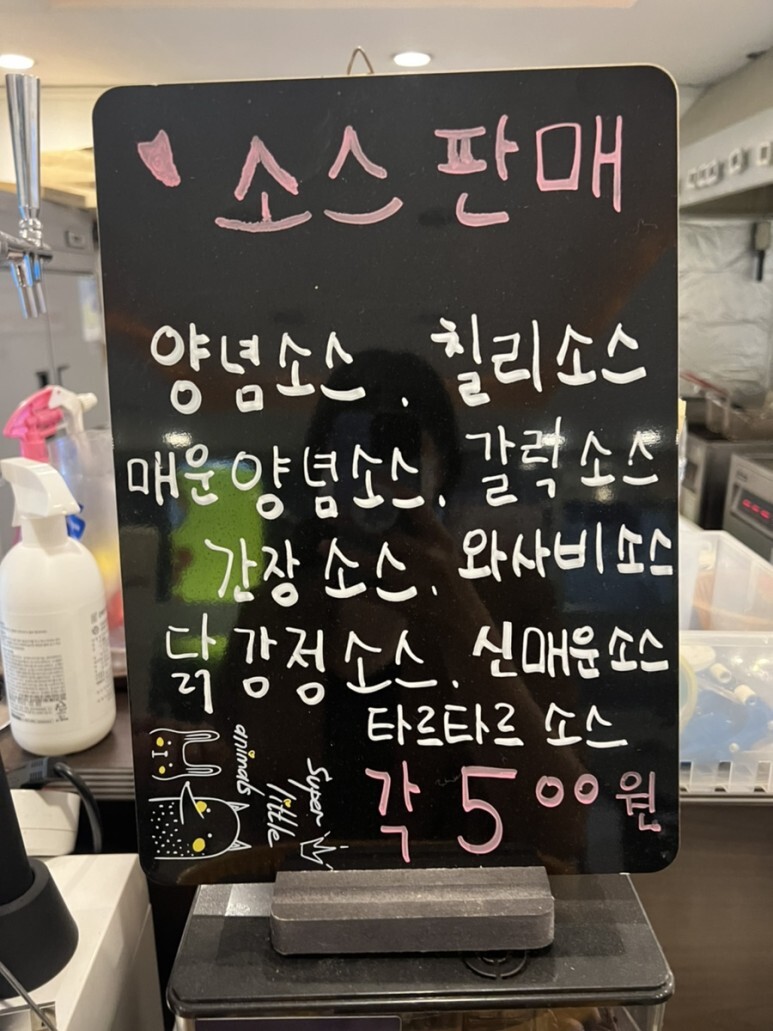 소스 판매
양념소스, 칠리소스
매운양념소스, 갈릭소스
간장소스, 와사비소스
닭강정소스, 신매운소스
타르타르 소스
각 500원
animals
little
Super